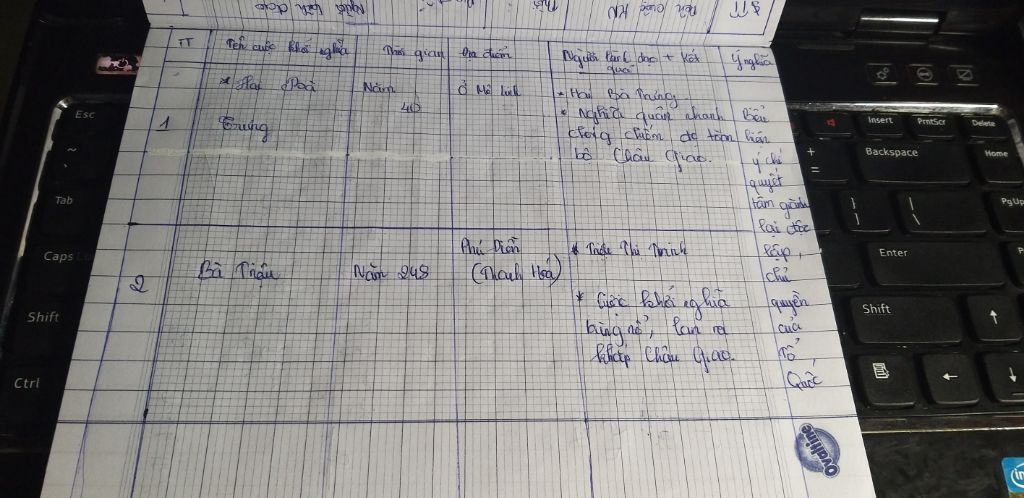 STT
TT
Tên cuộc khởi nghĩa
Thời gian
Địa điểm
Người lãnh đạo + kết quả
Ý nghĩa
1
* Hai Bà
Trưng
Năm
40
Ở Mê Linh
* Hai Bà Trưng.
* Nghĩa quân nhanh
chóng chiếm đc toàn
bộ Châu Giao.
Biểu
hiện
ý chí
quyết
tâm giành
lại độc
lập,
chủ
quyền
của
Tổ
Quốc
2
Bà Triệu
Năm 248
Phú Điền
(Thanh Hoá)
* Triệu Thị Trinh
* Cuộc khởi nghĩa
bùng nổ, lan ra
khắp Châu Giao.
Ovaltine
Esc
~
`
Tab
Caps
Shift
Ctrl
Insert
PrntScr
Delete
+
=
Backspace
Home
}
]
|
\
PgUp
Enter
Shift